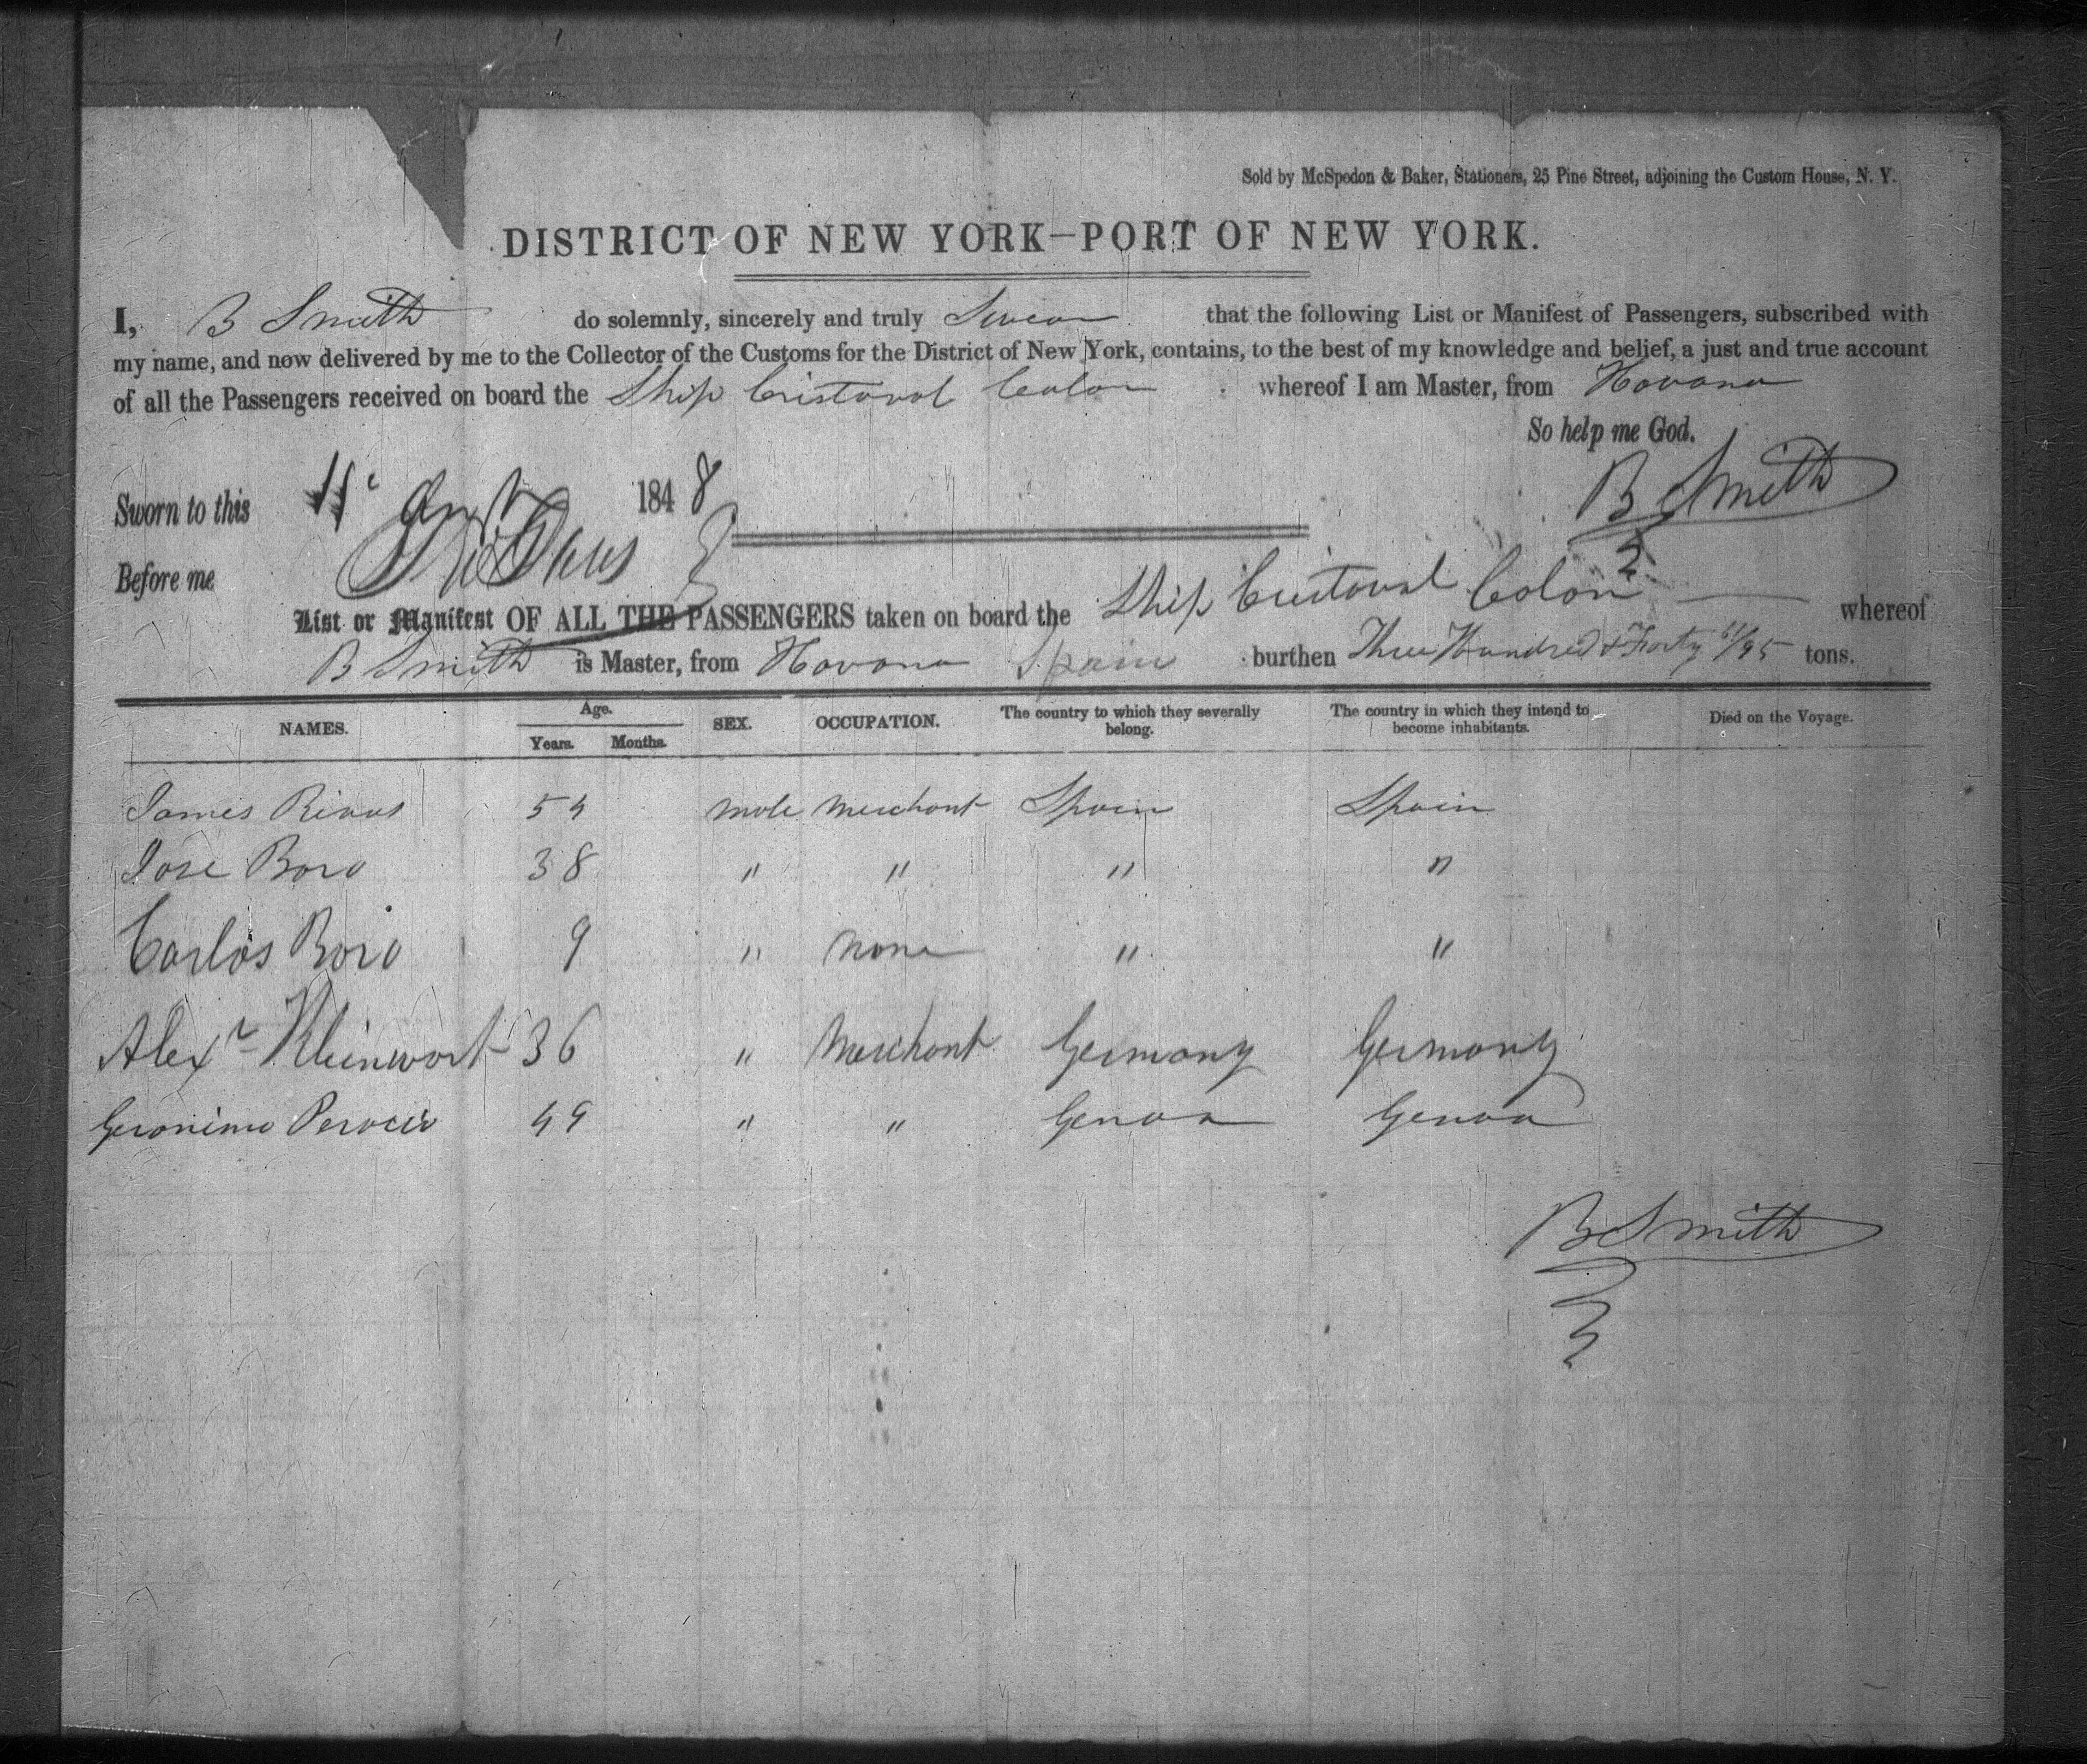 Sold by McSpedon & Baker, Stationers, 25 Pine Street, adjoining the Custom House, N. Y.
DISTRICT OF NEW YORK—PORT OF NEW YORK.
I, B Smith do solemnly, sincerely and truly Swear that the following List or Manifest of Passengers, subscribed with
my name, and now delivered by me to the Collector of the Customs for the District of New York, contains, to the best of my knowledge and belief, a just and true account
of all the Passengers received on board the Ship Cristoval Colon whereof I am Master, from Havana
So help me God.
B Smith
Sworn to this 1848
Before me
List or Manifest OF ALL THE PASSENGERS taken on board the Ship Cristoval Colon whereof
B Smith is Master, from Havana Spain burthen Three Hundred & Forty 61/95 tons.
NAMES. Age. Years. Months. SEX. OCCUPATION. The country to which they severally belong. The country in which they intend to become inhabitants. Died on the Voyage.
James Rivas 54 male merchant Spain Spain
Jose Boro 38 " " " "
Carlos Boro 9 " none " "
Alexr Kleinwort 36 " Merchant Germany Germany
Geronimo 49 " " Genoa Genoa
B Smith